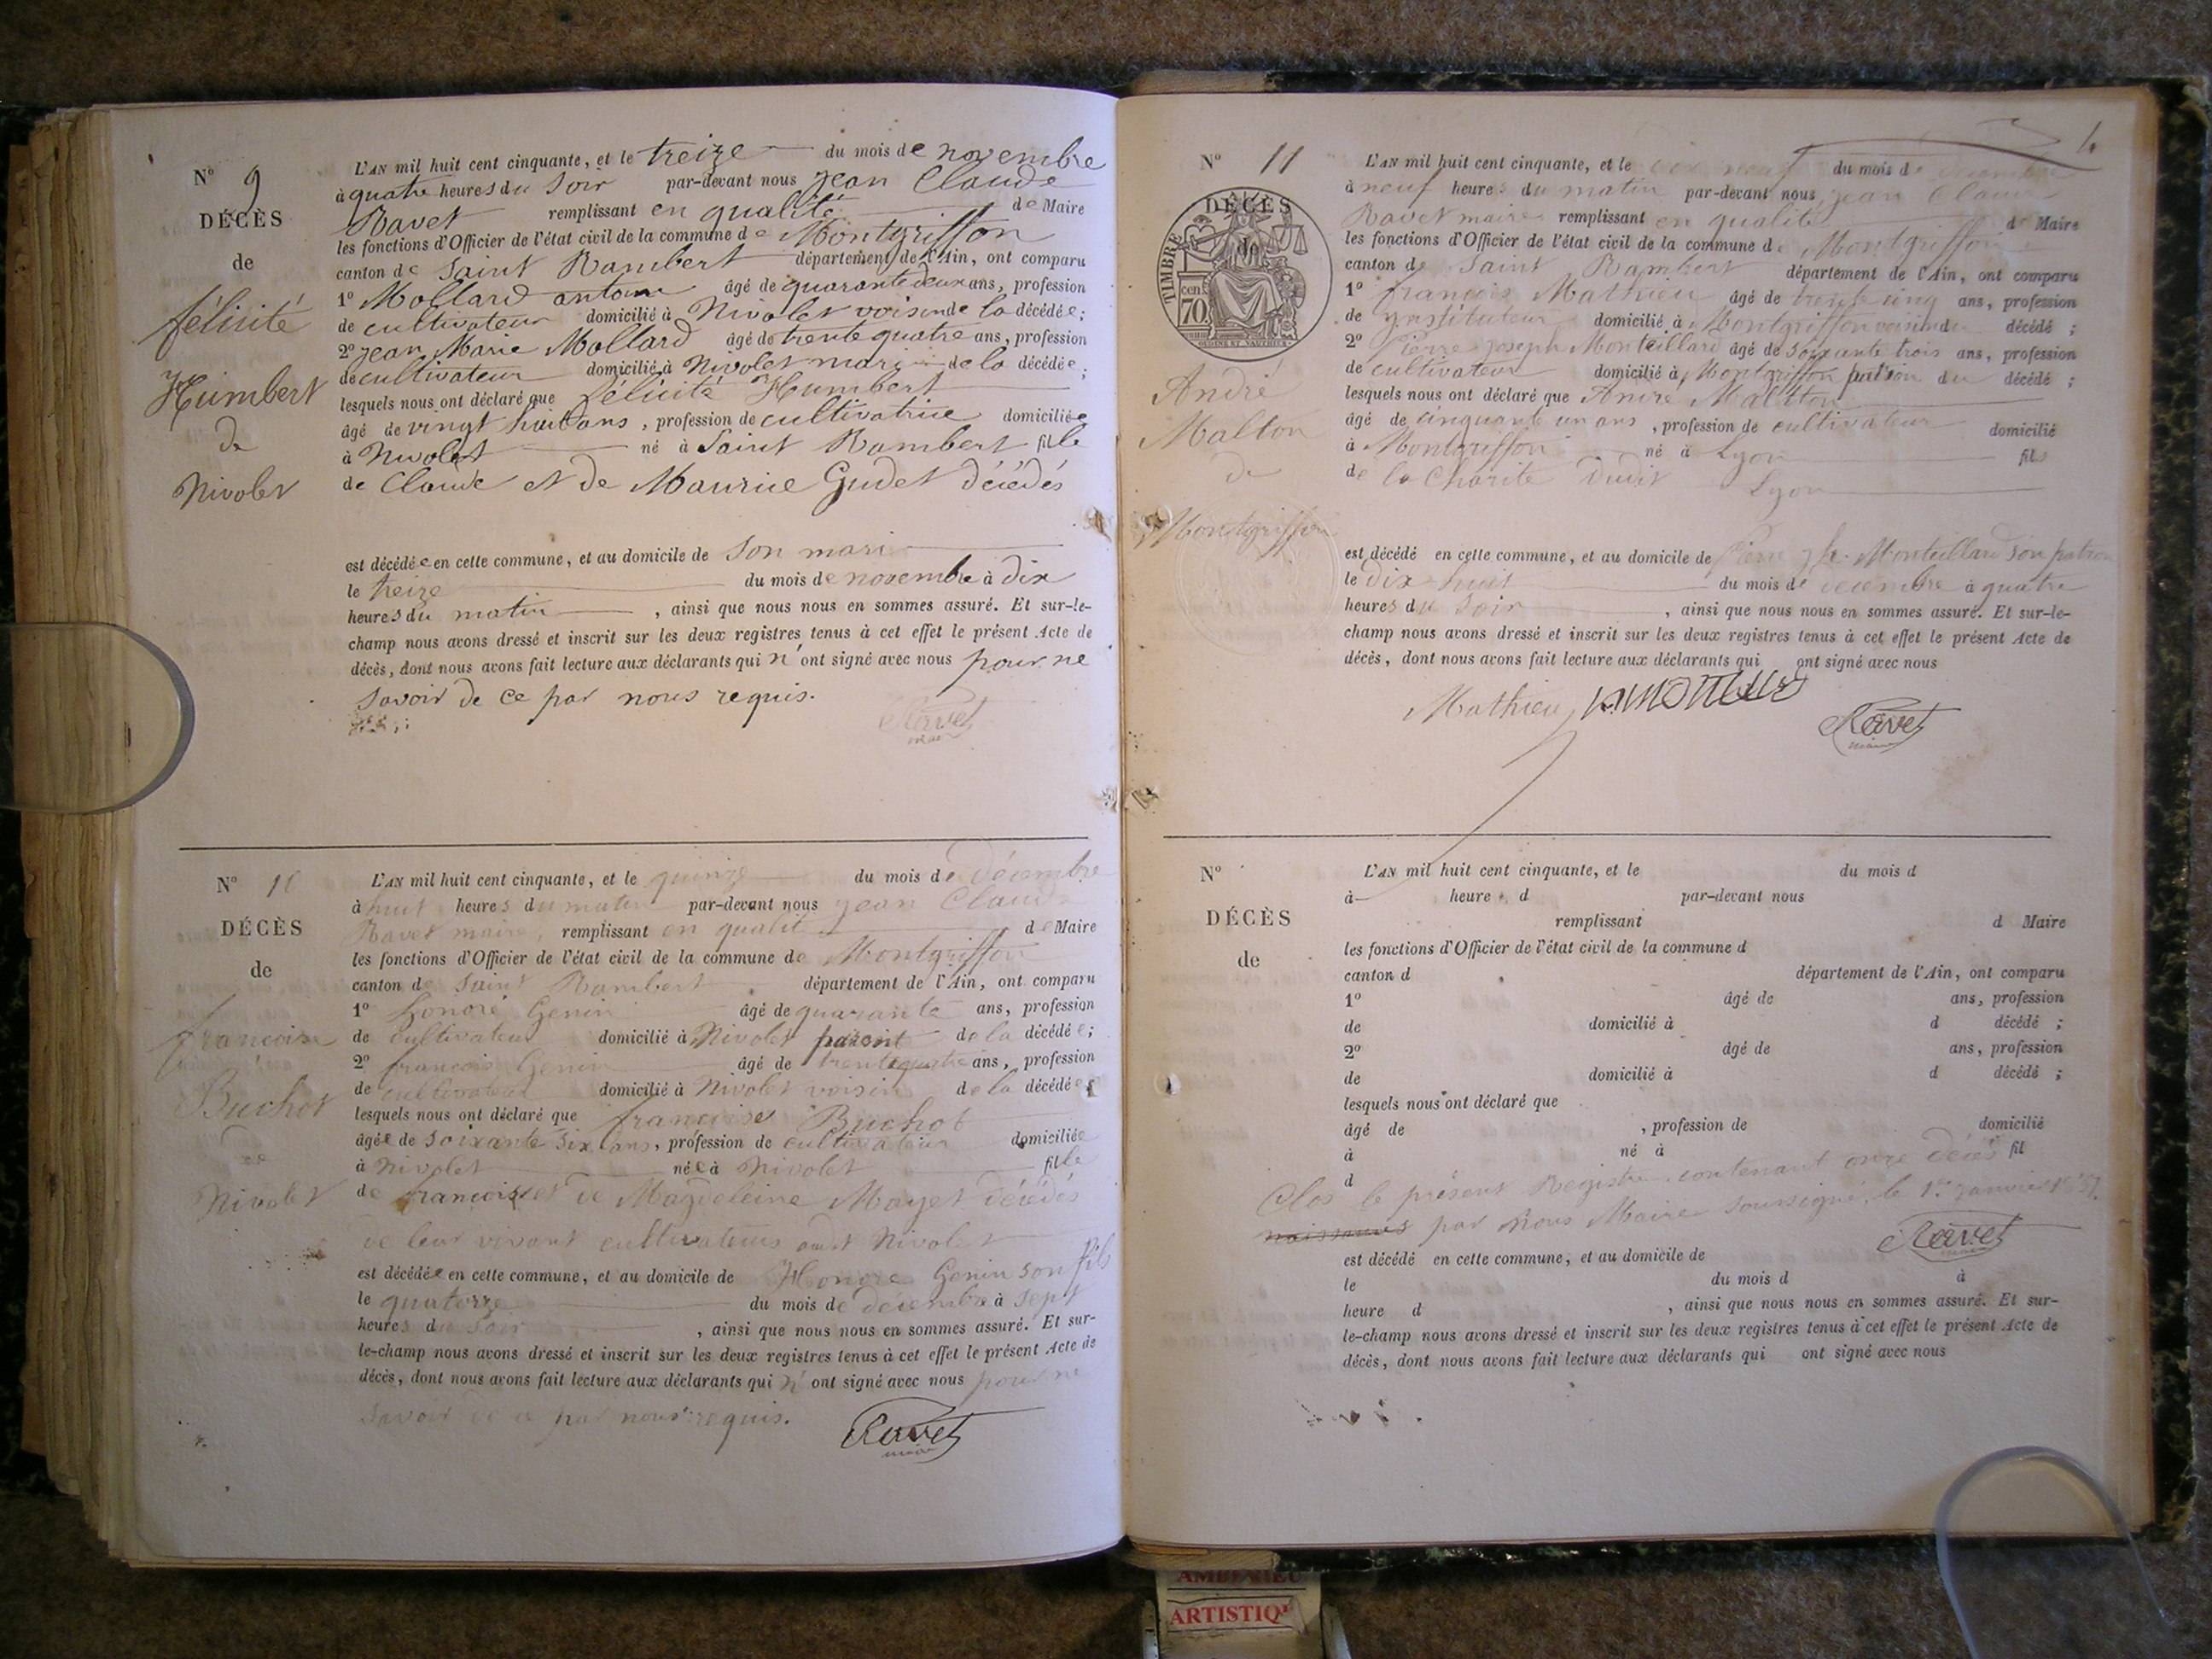 N° 9
DÉCÈS
de
félicité
Humbert
de
Nivolet
L'AN mil huit cent cinquante, et le treize du mois de novembre
à quatre heures du soir par-devant nous jean Claude
Ravet remplissant en qualité de Maire
les fonctions d'Officier de l'état civil de la commune de Montgriffon
canton de Saint Rambert département de l'Ain, ont comparu
1° Mollard antoine âgé de quarante deux ans, profession
de cultivateur domicilié à Nivolet voisin de la décédée;
2° jean Marie Mollard âgé de trente quatre ans, profession
de cultivateur domicilié à Nivolet mari de la décédée;
lesquels nous ont déclaré que félicité Humbert
âgé de vingt huit ans, profession de cultivatrice domiciliée
à Nivolet né à Saint Rambert fille
de Claude et de Maurice Gudet décédés
est décédée en cette commune, et au domicile de son mari
le treize du mois de novembre à dix
heures du matin, ainsi que nous nous en sommes assuré. Et sur-le-
champ nous avons dressé et inscrit sur les deux registres tenus à cet effet le présent Acte de
décès, dont nous avons fait lecture aux déclarants qui n'ont signé avec nous pour ne
savoir de ce par nous requis.
Ravet
maire
N° 10
DÉCÈS
de
francoise
Buchot
de
Nivolet
L'AN mil huit cent cinquante, et le quinze du mois de décembre
à huit heures du matin par-devant nous jean Claude
Ravet maire, remplissant en qualité de Maire
les fonctions d'Officier de l'état civil de la commune de Montgriffon
canton de Saint Rambert département de l'Ain, ont comparu
1° honoré Genin âgé de quarante ans, profession
de cultivateur domicilié à Nivolet parent de la décédée;
2° francois Genin âgé de trente quatre ans, profession
de cultivateur domicilié à Nivolet voisin de la décédée
lesquels nous ont déclaré que francoise Buchot
âgée de soixante six ans, profession de cultivateur domiciliée
à Nivolet née à Nivolet fille
de francois et de Magdeleine Mayet décédés
de leur vivant cultivateurs audit Nivolet
est décédée en cette commune, et au domicile de Honoré Genin son fils
le quatorze du mois de décembre à sept
heures du soir, ainsi que nous nous en sommes assuré. Et sur-
le-champ nous avons dressé et inscrit sur les deux registres tenus à cet effet le présent Acte de
décès, dont nous avons fait lecture aux déclarants qui n'ont signé avec nous pour ne
savoir de ce par nous requis.
Ravet
maire
4
N° 11
DÉCÈS
de
TIMBRE
cen
70
André
Malton
de
Montgriffon
L'AN mil huit cent cinquante, et le dix neuf du mois de décembre
à neuf heures du matin par-devant nous jean Claude
Ravet maire remplissant en qualité de Maire
les fonctions d'Officier de l'état civil de la commune de Montgriffon
canton de Saint Rambert département de l'Ain, ont comparu
1° francois Mathieu âgé de trente cinq ans, profession
de instituteur domicilié à Montgriffon voisin du décédé;
2° Pierre joseph Monteillard âgé de soixante trois ans, profession
de cultivateur domicilié à Montgriffon patron du décédé;
lesquels nous ont déclaré que André Malton
âgé de cinquante un ans, profession de cultivateur domicilié
à Montgriffon né à Lyon fils
de la Charité dudit Lyon
est décédé en cette commune, et au domicile de Pierre jh. Monteillard son patron
le dix huit du mois de décembre à quatre
heures du soir, ainsi que nous nous en sommes assuré. Et sur-le-
champ nous avons dressé et inscrit sur les deux registres tenus à cet effet le présent Acte de
décès, dont nous avons fait lecture aux déclarants qui ont signé avec nous
Mathieu
Ravet
maire
N°
DÉCÈS
de
L'AN mil huit cent cinquante, et le du mois d
à heure d par-devant nous
remplissant d Maire
les fonctions d'Officier de l'état civil de la commune d
canton d département de l'Ain, ont comparu
1° âgé de ans, profession
de domicilié à d décédé;
2° âgé de ans, profession
de domicilié à d décédé;
lesquels nous ont déclaré que
âgé de, profession de domicilié
à né à fil
d
Clos le présent Registre contenant onze décès
naissances par Nous Maire soussigné, le 1er janvier 1851.
Ravet
maire
est décédé en cette commune, et au domicile de
le du mois d à
heure d, ainsi que nous nous en sommes assuré. Et sur-
le-champ nous avons dressé et inscrit sur les deux registres tenus à cet effet le présent Acte de
décès, dont nous avons fait lecture aux déclarants qui ont signé avec nous
ARTISTIQUE